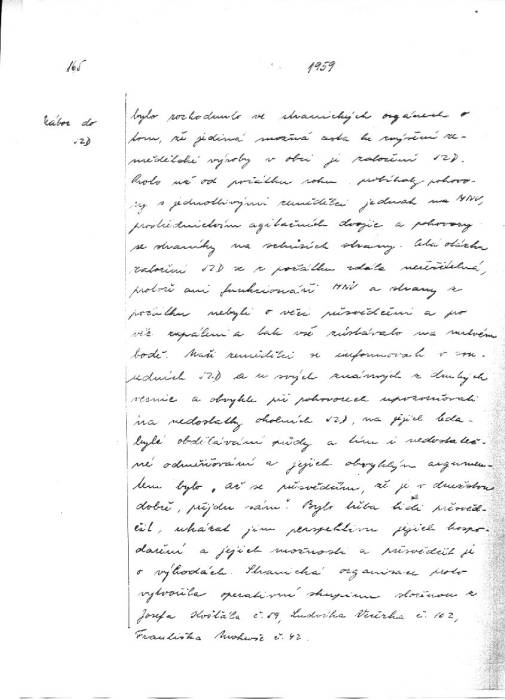 165
1959
Nábor do
JZD
bylo rozhodnuto ve stranických orgánech o
tom, že jediná možná cesta ke zvýšení ze-
mědělské výroby v obci je založení JZD.
Proto už od počátku roku probíhaly pohovo-
ry s jednotlivými zemědělci jednak na MNV,
prostřednictvím agitačních dvojic a pohovory
se straníky na schůzích strany. Celá otázka
založení JZD se z počátku zdála neřešitelná,
protože ani funkcionáři MNV a strany z
počátku nebyli o věci přesvědčeni a pro
věc zapáleni a tak vše zůstávalo na mrtvém
bodě. Naši zemědělci se informovali v sou-
sedních JZD a u svých známých z druhých
vesnic a obvykle při pohovorech upozorňovali
na nedostatky okolních JZD, na jejich leda-
bylé obdělávání půdy a tím i nedostateč-
né odměňování a jejich obvyklým argumen-
tem bylo „až se přesvědčím, že je v družstvu
dobře, přijdu sám". Bylo třeba lidi přesvěd-
čit, ukázat jim perspektivu jejich hospo-
daření a jejich možnosti a přesvědčit je
o výhodách. Stranická organisace proto
vytvořila operativní skupinu složenou z
Josefa č. 59, Ludvíka č. 102,
Františka č. 42.